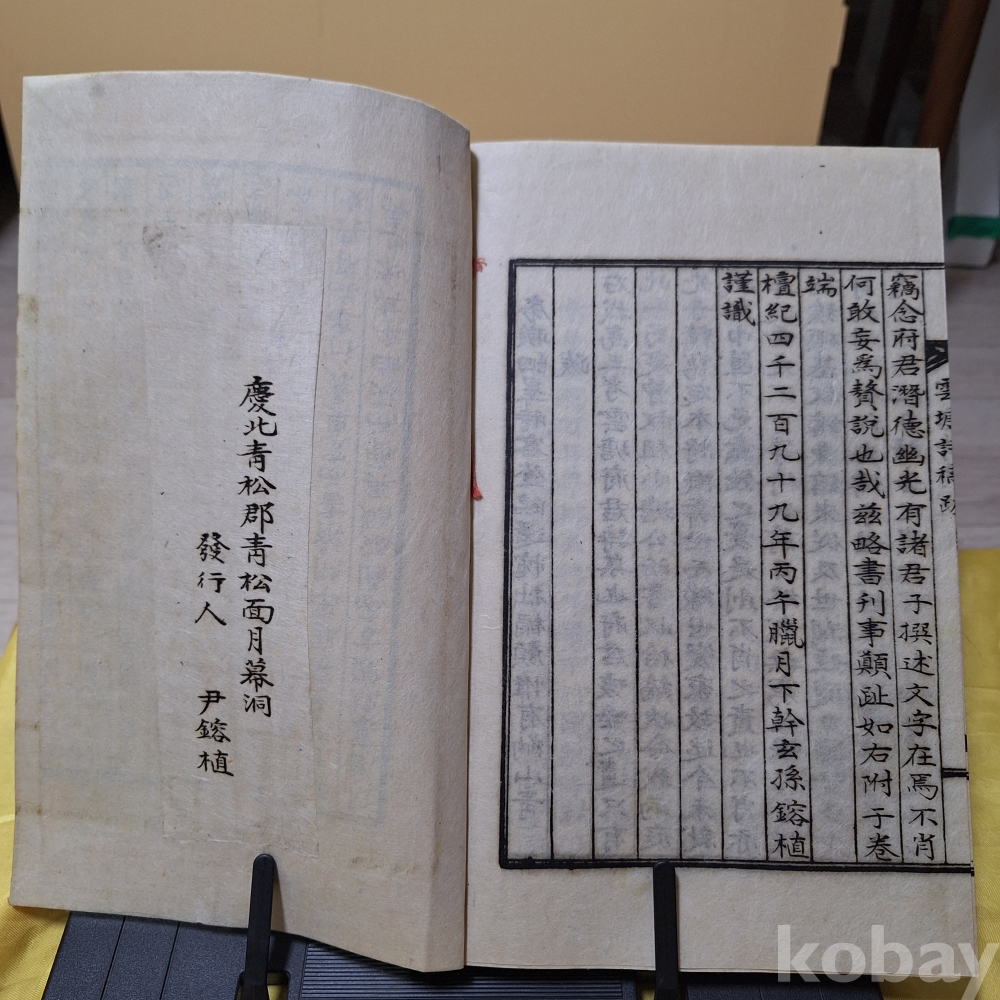 雲塘詩稿跋
竊念府君潛德幽光有諸君子撰述文字在焉不肖
何敢妄爲贅說也哉茲略書刊事顛趾如右附于卷
端
檀紀四千二百九十九年丙午臘月下幹玄孫鎔植
謹識
慶北靑松郡靑松面月幕洞
發行人 尹鎔植
kobay